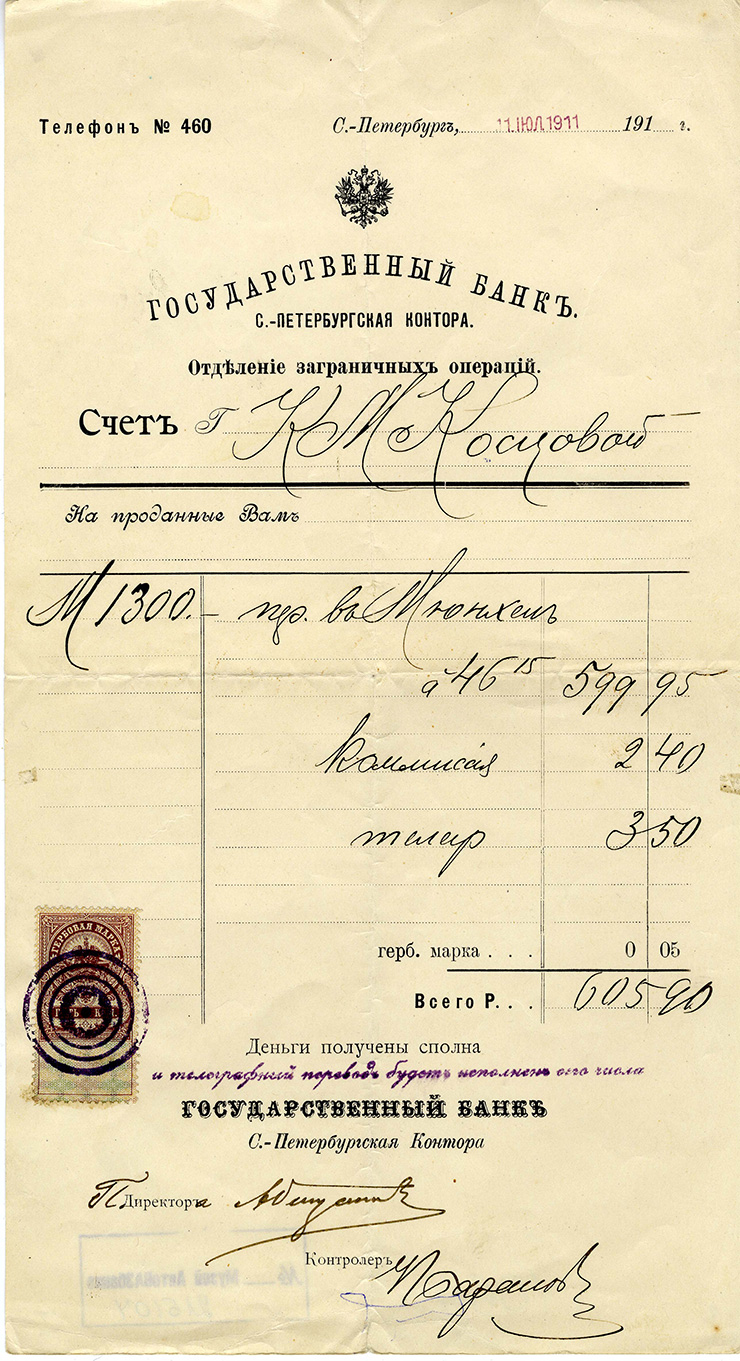 Телефонъ № 460
С.-Петербургъ, 11.ІЮЛ.1911 191 г.
ГОСУДАРСТВЕННЫЙ БАНКЪ.
С.-ПЕТЕРБУРГСКАЯ КОНТОРА.
Отдѣленіе заграничныхъ операцій.
Счетъ Г К М Косцовой
На проданные Вамъ
М 1300.— пер. въ Мюнхенъ
à 46 15 599 95
Коммисія 2 40
телегр 3 50
герб. марка . . . 0 05
Всего Р. . . 605 90
ГЕРБОВАЯ МАРКА
Деньги получены сполна
и телеграфный переводъ будетъ исполненъ сего числа
ГОСУДАРСТВЕННЫЙ БАНКЪ
С.-Петербургская Контора
П Директора
Контролеръ